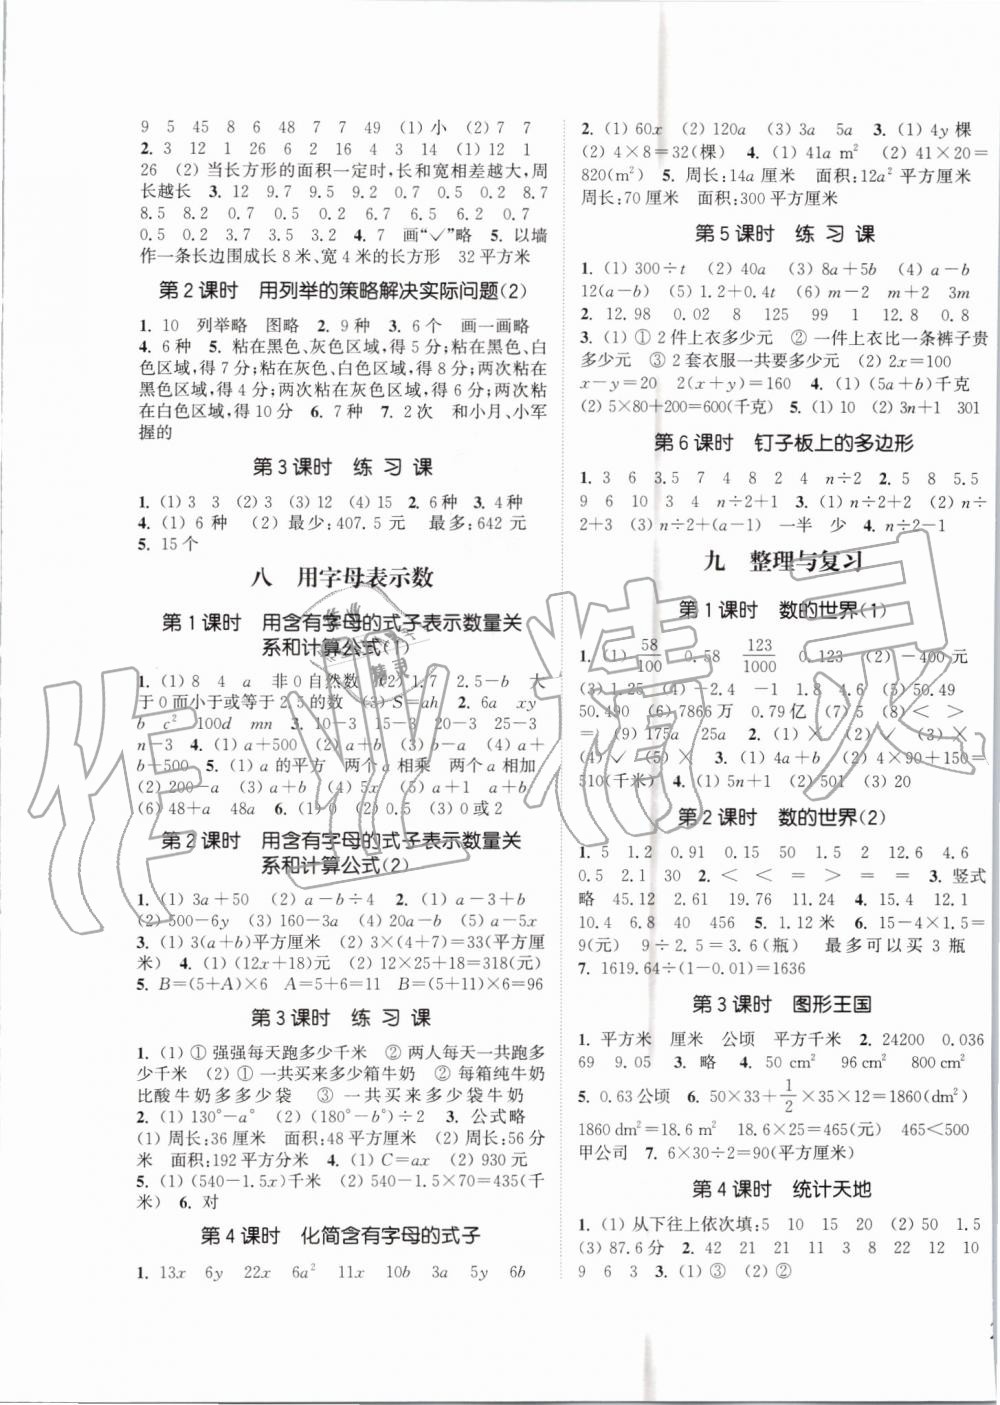 9 5 45 8 6 48 7 7 49 (1)小 (2)7 7
2. 3 12 1 26 6 2 16 4 3 14 (1)12 1
26 (2)当长方形的面积一定时,长和宽相差越大,周
长越长 3. 12 9.7 9.5 9.2 0.7 0.5 0.2 8.7
8.5 8.2 0.7 0.5 0.2 6.5 6.2 0.7
0.5 0.2 3.7 3.5 3.2 4. 7 画“✓”略 5. 以墙
作一条长边围成长8米、宽4米的长方形 32平方米
第2课时 用列举的策略解决实际问题(2)
1. 10 列举略 图略 2. 9种 3. 6个 画一画略
4. 6种 5. 粘在黑色、灰色区域,得5分;粘在黑色、白
色区域,得7分;粘在灰色、白色区域,得8分;两次粘在
黑色区域,得4分;两次粘在灰色区域,得6分;两次粘
在白色区域,得10分 6. 7种 7. 2次 和小月、小军
握的
第3课时 练习课
1. (1)3 3 (2)3 (3)12 (4)15 2. 6种 3. 4种
4. (1)6种 (2)最少:407.5元 最多:642元
5. 15个
八 用字母表示数
第1课时 用含有字母的式子表示数量关
系和计算公式(1)
1. (1)8 4 a 非0自然数 (2)1.7 2.5-b 大
于0而小于或等于2.5的数 (3)S=ah 2. 6a xy
b c² 100d mn 3. 10-3 15-3 20-3 25-3
n-3 4. (1)a+500 (2)a+b (3)a-b (4)a+500
a+b+500 5. (1)a的平方 两个a相乘 两个a相加
(2)200-a (3)a+b (4)5x (5)a+1 a+b
(6)48+a 48a 6. (1)0 (2)0.5 (3)0或2
第2课时 用含有字母的式子表示数量关
系和计算公式(2)
1. (1)3a+50 (2)a-b÷4 2. (1)a-3+b
(2)500-6y (3)160-3a (4)20a-b (5)a-5x
3. (1)3(a+b)平方厘米 (2)3×(4+7)=33(平方厘
米) 4. (1)(12x+18)元 (2)12×25+18=318(元)
5. B=(5+A)×6 A=5+6=11 B=(5+11)×6=96
第3课时 练习课
1. (1)①强强每天跑多少千米 ②两人每天一共跑多
少千米 (2)①一共买来多少箱牛奶 ②每箱纯牛奶
比酸牛奶多多少袋 ③一共买来多少袋牛奶
2. (1)130°-a° (2)(180°-b°)÷2 3. 公式略
(1)周长:36厘米 面积:48平方厘米 (2)周长:56分
米 面积:192平方分米 4. (1)C=ax (2)930元
5. (1)(540-1.5x)千米 (2)540-1.5×70=435(千
米) 6. 对
第4课时 化简含有字母的式子
1. 13x 6y 22x 6a² 11x 10b 3a 5y 6b
2. (1)60x (2)120a (3)3a 5a 3. (1)4y棵
(2)4×8=32(棵) 4. (1)41a m² (2)41×20=
820(m²) 5. 周长:14a厘米 面积:12a²平方厘米
周长:70厘米 面积:300平方厘米
第5课时 练习课
1. (1)300÷t (2)40a (3)8a+5b (4)a-b
12(a-b) (5)1.2+0.4t (6)m-2 m+2 3m
2. 12.98 0.02 8 125 99 1 12.8 0.8
3. (1)①2件上衣多少元 ②一件上衣比一条裤子贵
多少元 ③2套衣服一共要多少元 (2)2x=100
x-y=20 2(x+y)=160 4. (1)(5a+b)千克
(2)5×80+200=600(千克) 5. (1)10 (2)3n+1 301
第6课时 钉子板上的多边形
1. 3 6 3.5 7 4 8 2 4 n÷2 2. 5 8 5.5
9 6 10 3 4 n÷2+1 3. (1)n÷2+2 (2)n÷
2+3 (3)n÷2+(a-1) 一半 少 4. n÷2-1
九 整理与复习
第1课时 数的世界(1)
1. (1)58/100 0.58 123/1000 0.123 (2)-400元
(3)1.25 (4)-2.4 -1 1.8 4.6 (5)50.49
50.490 (6)7866万 0.79亿 (7)5 (8)< >
= (9)175a 25a 2. (1)× (2)✓ (3)×
(4)✓ (5)× 3. (1)4a+b (2)4×90+150=
510(千米) 4. (1)5n+1 (2)501 (3)20
第2课时 数的世界(2)
1. 5 1.2 0.91 0.15 50 1.5 2 12.6 4.6
0.5 2.1 30 2. < < = > > < 3. 竖式
略 45.12 2.61 19.76 11.24 4. 18.2 12.1
10.4 6.8 40 456 5. 1.12米 6. 15-4×1.5=
9(元) 9÷2.5=3.6(瓶) 最多可以买3瓶
7. 1619.64÷(1-0.01)=1636
第3课时 图形王国
1. 平方米 厘米 公顷 平方千米 2. 24200 0.036
69 9.05 3. 略 4. 50 cm² 96 cm² 800 cm²
5. 0.63公顷 6. 50×33+1/2×35×12=1860(dm²)
1860 dm²=18.6 m² 18.6×25=465(元) 465<500
甲公司 7. 6×30÷2=90(平方厘米)
第4课时 统计天地
1. (1)从下往上依次填:5 10 15 20 (2)50 1.5
(3)87.6分 2. 42 21 21 38 8 22 12 10
9 6 3 3. (1)③ (2)②